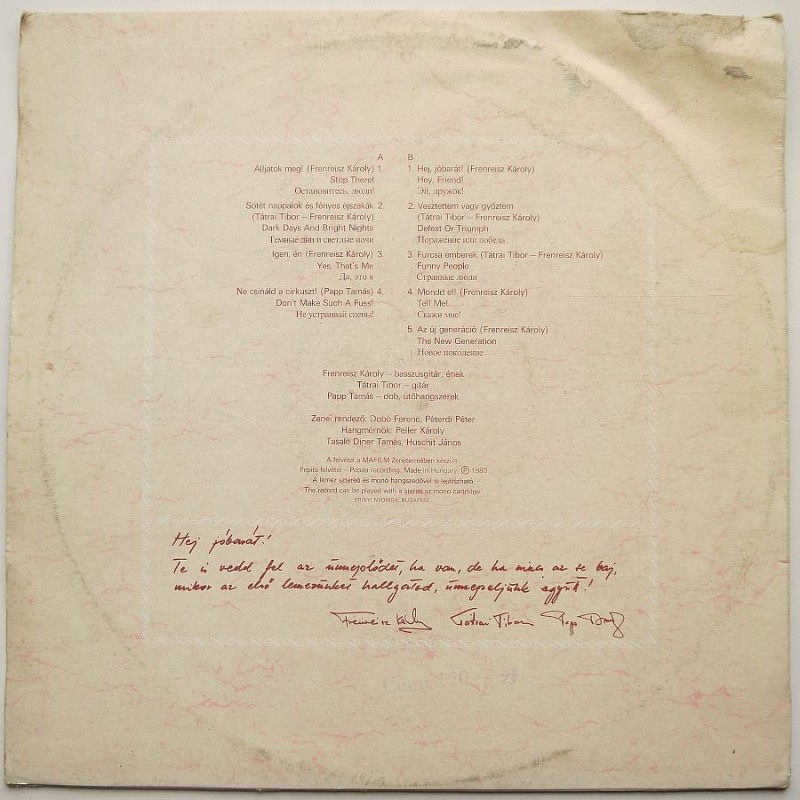 A
Álljatok meg! (Frenreisz Károly) 1.
Stop There!
Остановитесь, люди!
Sötét nappalok és fényes éjszakák 2.
(Tátrai Tibor – Frenreisz Károly)
Dark Days And Bright Nights
Темные дни и светлые ночи
Igen, én (Frenreisz Károly) 3.
Yes, That's Me
Да, это я
Ne csináld a cirkuszt! (Papp Tamás) 4.
Don't Make Such A Fuss!
Не устраивай сцены!
B
1. Hej, jóbarát! (Frenreisz Károly)
Hey, Friend!
Эй, дружок!
2. Vesztettem vagy győztem
(Tátrai Tibor – Frenreisz Károly)
Defeat Or Triumph
Поражение или победа
3. Furcsa emberek (Tátrai Tibor – Frenreisz Károly)
Funny People
Странные люди
4. Mondd el! (Frenreisz Károly)
Tell Me!
Скажи мне!
5. Az új generáció (Frenreisz Károly)
The New Generation
Новое поколение
Frenreisz Károly – basszusgitár, ének
Tátrai Tibor – gitár
Papp Tamás – dob, ütőhangszerek
Zenei rendező: Dobó Ferenc, Péterdi Péter
Hangmérnök: Peller Károly
Tasale Diner Tamás, Huschit János
A felvétel a MAFILM Zenetermében készült
Pepita felvétel – Pepita recording, Made in Hungary Ⓟ 1980
A lemez sztereó és mono hangszedővel is lejátszható
The record can be played with a stereo or mono cartridge
ZRÍNYI NYOMDA, BUDAPEST
Hej jóbarát!
Te is vedd fel az ünneplődet, ha van, de ha nincs az se baj,
mikor az első lemezünket hallgatod, ünnepeljünk együtt!
Frenreisz Károly Tátrai Tibor Papp Tamás